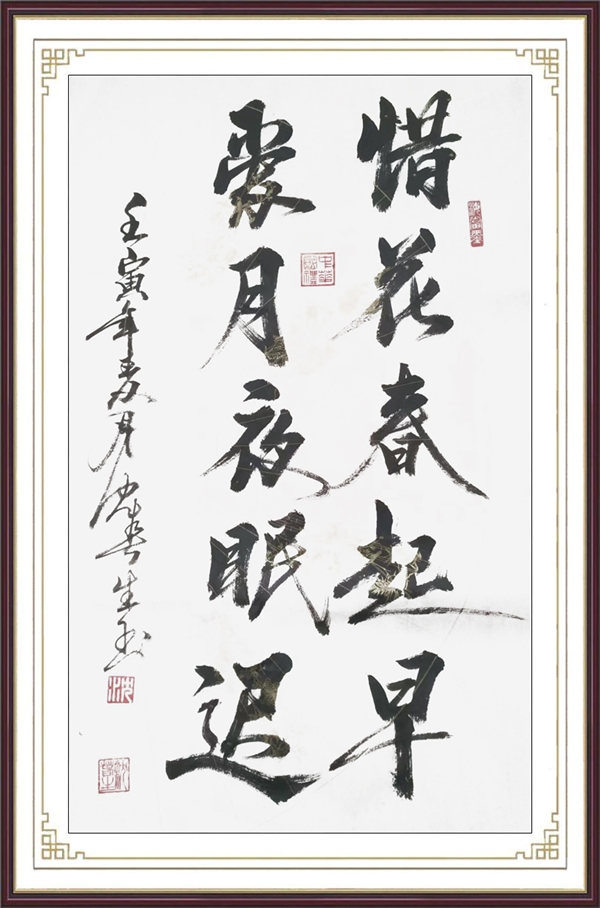 惜花春起早
爱月夜眠迟
壬寅年夏月沈春生书
沈